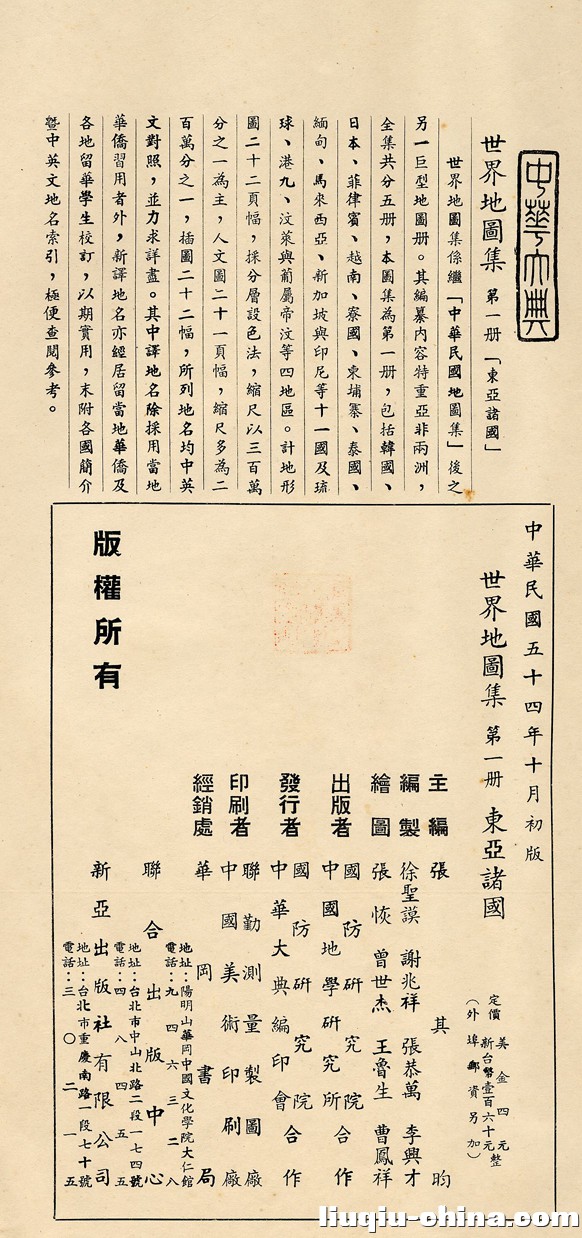 中華大典
世界地圖集 第一册「東亞諸國」
世界地圖集係繼「中華民國地圖集」後之
另一巨型地圖册。其編纂內容特重亞非兩洲，
全集共分五册，本圖集為第一册，包括韓國、
日本、菲律賓、越南、寮國、柬埔寨、泰國、
緬甸、馬來西亞、新加坡與印尼等十一國及琉
球、港九、汶萊與葡屬帝汶等四地區。計地形
圖二十二頁幅，採分層設色法，縮尺以三百萬
分之一為主，人文圖二十一頁幅，縮尺多為二
百萬分之一，插圖二十二幅，所列地名均中英
文對照，並力求詳盡。其中譯地名除採用當地
華僑習用者外，新譯地名亦經居留當地華僑及
各地留華學生校訂，以期實用，末附各國簡介
暨中英文地名索引，極便查閱參考。
中華民國五十四年十月初版
世界地圖集 第一册 東亞諸國
定價 美金四元
新台幣壹百六十元整
（外埠郵資另加）
主編 張其昀
編製 徐聖謨 謝兆祥 張恭萬 李興才
繪圖 張恢 曾世杰 王魯生 曹鳳祥
出版者 國防研究院
中國地學研究所 合作
發行者 國防研究院
中華大典編印會 合作
印刷者 聯勤測量製圖廠
中國美術印刷廠
經銷處 華岡書局
地址：陽明山華岡中國文化學院大仁館
電話：九四六三二八
聯合出版中心
地址：台北市中山北路二段一七四號
電話：四八四五五
新亞出版社有限公司
地址：台北市重慶南路一段七十號
電話：三〇二一五
版權所有
liuqiu-china.com